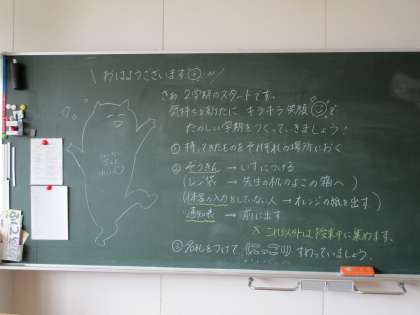 \ おはようございます。 //
さあ 2学期のスタートです。
気持ちを新たに キラキラ笑顔で
たのしい学期をつくっていきましょう!
① 持ってきたものをそれぞれの場所におく
② ぞうきん → いすにつける
(レジ袋 → 先生の机のよこの箱へ)
(体客の入力をしていない人 → オレンジの紙を出す)
通知表 → 前に出す
※ これ以外は授業中に集めます。
③ 名札をつけて、にっこり すわっていましょう。